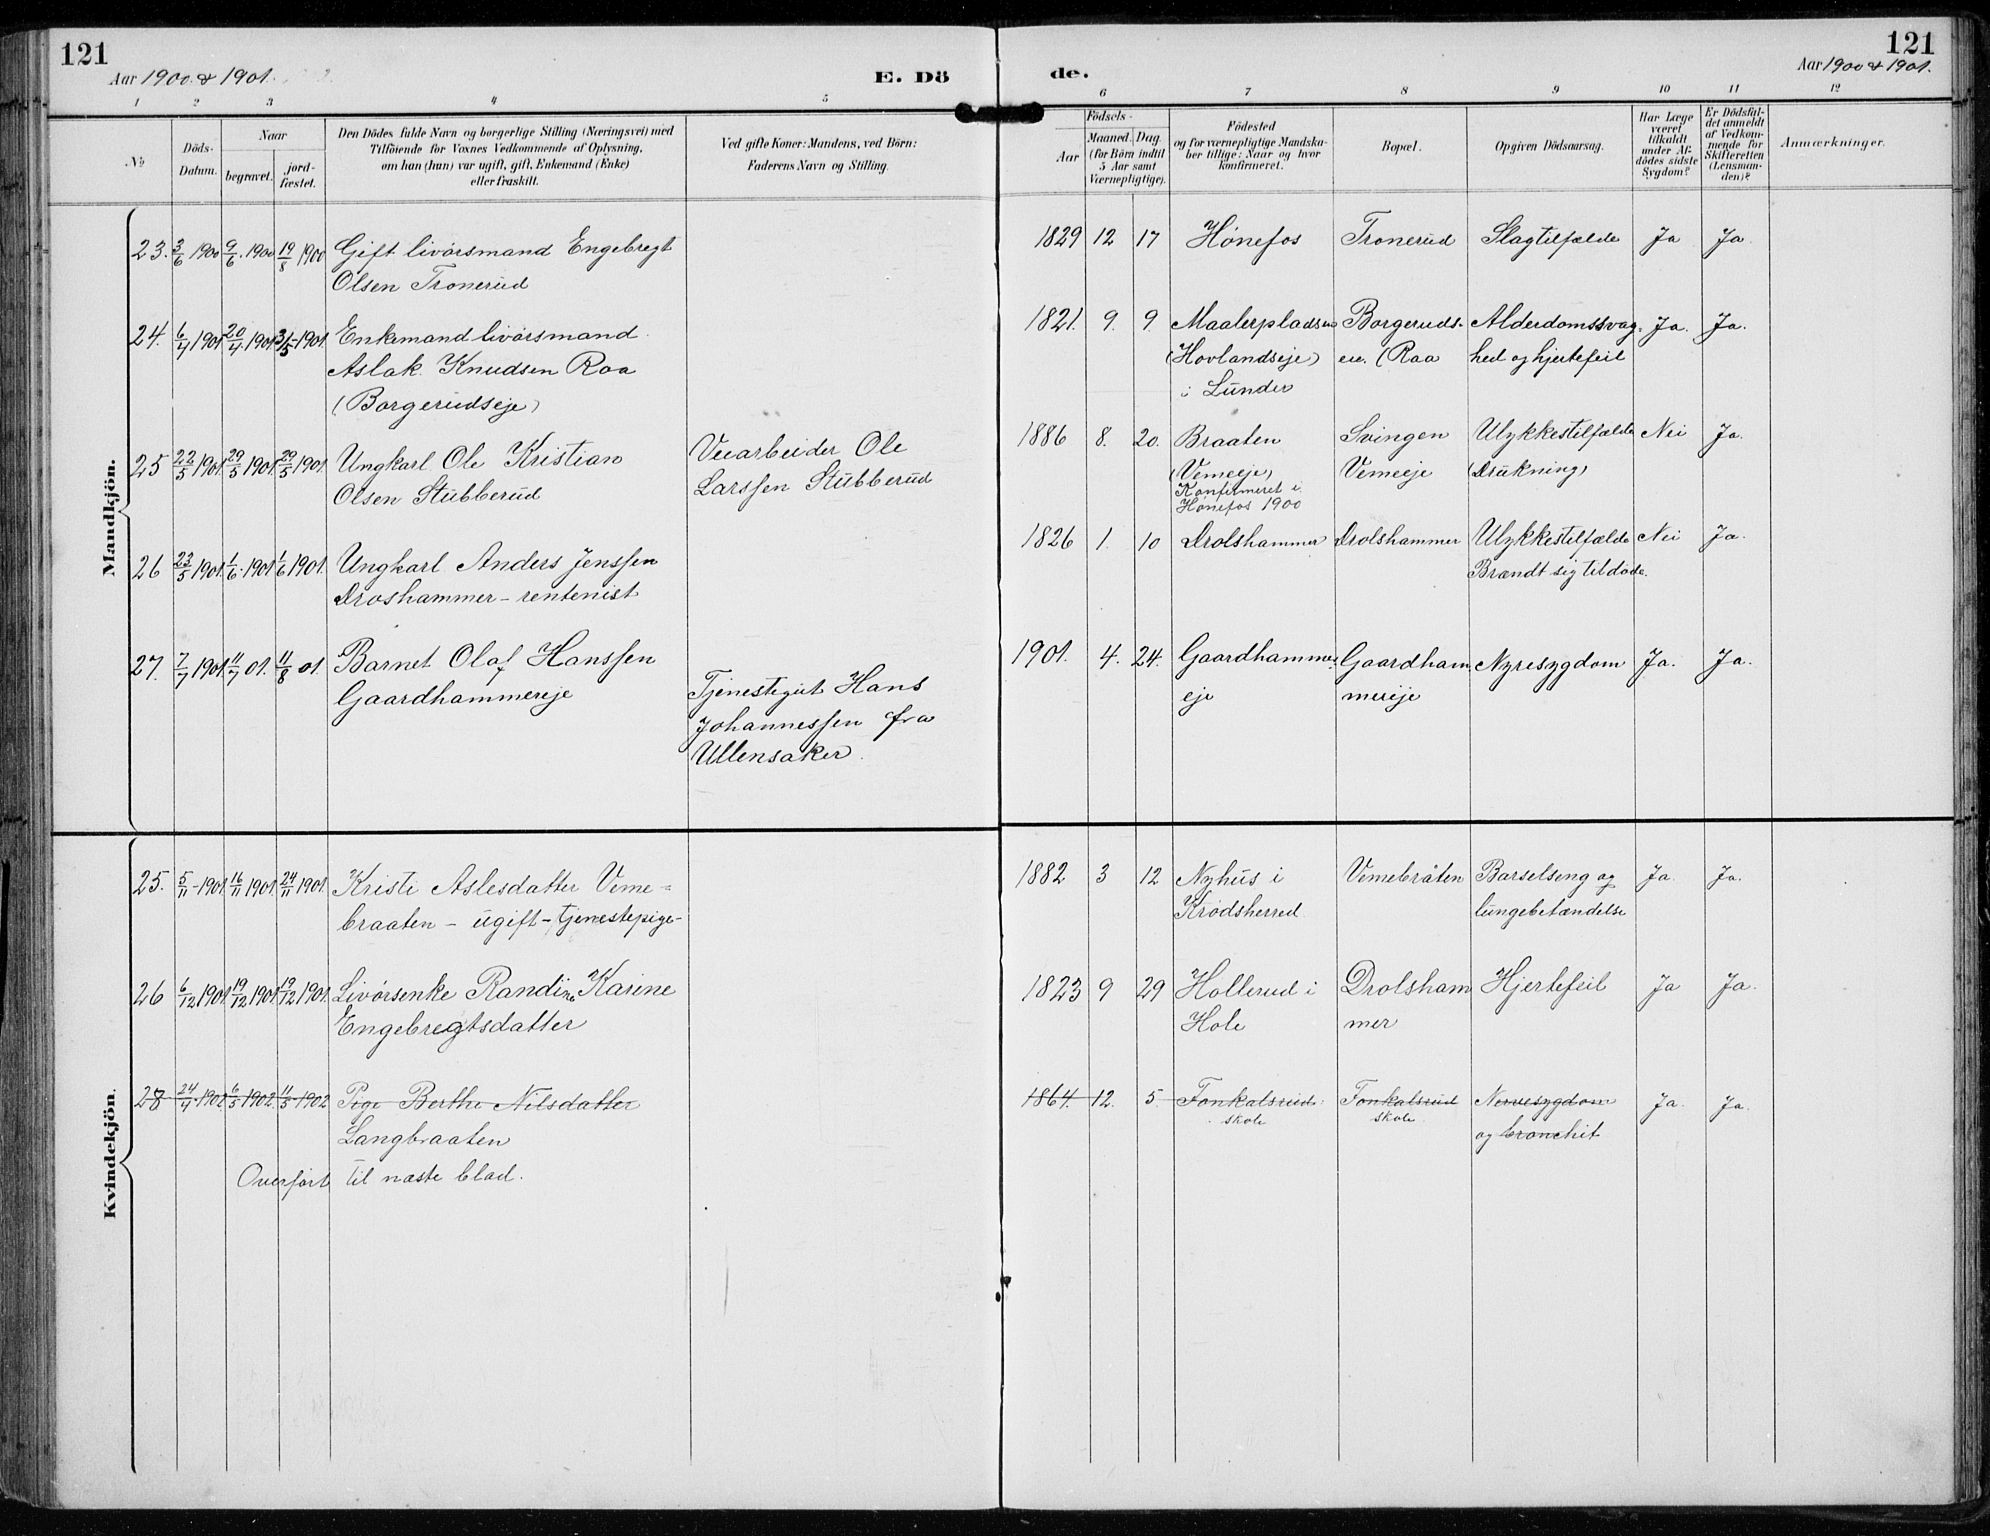 121
Aar 1900 & 1901.
E. Dö
de.
121
Aar 1900 & 1901.
1 2 3 4 5 6 7 8 9 10 11 12
No
Döds-
Datum.
Naar
begravet.
jord-
fæstet.
Den Dödes fulde Navn og borgerlige Stilling (Næringsvei) med
Tilföiende for Voxnes Vedkommende af Oplysning,
om han (hun) var ugift, gift, Enkemand (Enke)
eller fraskilt.
Ved gifte Koner: Mandens, ved Börn:
Faderens Navn og Stilling.
Födsels-
Aar
Maaned. Dag.
(for Börn indtil
5 Aar samt
Værnepligtige).
Födested
og for værnepligtige Mandska-
ber tillige: Naar og hvor
konfirmeret.
Bopæl.
Opgiven Dödsaarsag.
Har Læge
været
tilkaldt
under Af-
dödes sidste
Sygdom?
Er Dödsfal-
det anmeldt
af Vedkom-
mende for
Skifteretten
(Lensman-
den)?
Anmærkninger.
Mandkjön.
23. 3/6 1900 9/6. 1900 19/8 1900 Gift livörsmand Engebregt 1829 12 17 Hönefos Tronerud Slagtilfælde Ja Ja.
Olsen Tronerud
24. 6/4 1901 20/4. 1901 3/5-1901. Enkemand livörsmand 1821. 9. 9 Maalerpladsen Borgeruds- Alderdomssvag- Ja. Ja.
Aslak Knudsen Roa (Hovlandseje) eie. (Raa hed og hjertefeil
(Borgerudseje) i Lunder
25 22/5 1901. 29/5 1901. 29/5 1901. Ungkarl Ole Kristian Veiarbeider Ole 1886 8. 20. Braaten Svingen Ulykkestilfælde Nei Ja.
Olsen Stubberud Larssen Stubberud (Vemeeje) Vemeeje (Drukning)
Konfirmeret i
Hönefos 1900
26 23/5 1901. 1/6. 1901 1/6 1901. Ungkarl Anders Jenssen 1826 1. 10 Drolshammer Drolshammer Ulykkestilfælde Nei Ja.
Droshammer - rentenist Brændt sig tildöde.
27. 7/7 1901. 11/7 01. 11/8 01. Barnet Olaf Hanssen 1901. 4. 24. Gaardhammer Gaardham Nyresygdom Ja. Ja.
Gaardhammereje Tjenestegut Hans eje mereje
Johannessen fra
Ullensaker.
Kvindekjön.
25. 5/11-1901. 16/11 1901. 24/11 1901. Kristi Aslesdatter Veme= 1882 3 12 Nyhus i Vemebråten Barselseng og Ja. Ja.
braaten - ugift - tjenestepige- Krödsherred lungebetændelse
26 6/12 1901 19/12 1901. 19/12 1901. Livörsenke Randine Karine 1823 9 29 Hollerud i Drolsham Hjertefeil Ja Ja.
Engebregtsdatter Hole mer
28 24/4.1902 6/5 1902. 11/5 1902 Pige Berthe Nilsdatter 1864. 12. 5. Fonkalsrud Fonkalsrud Nervesygdom Ja. Ja.
Langbraaten skole skole og bronchit
Overfört til næste blad.